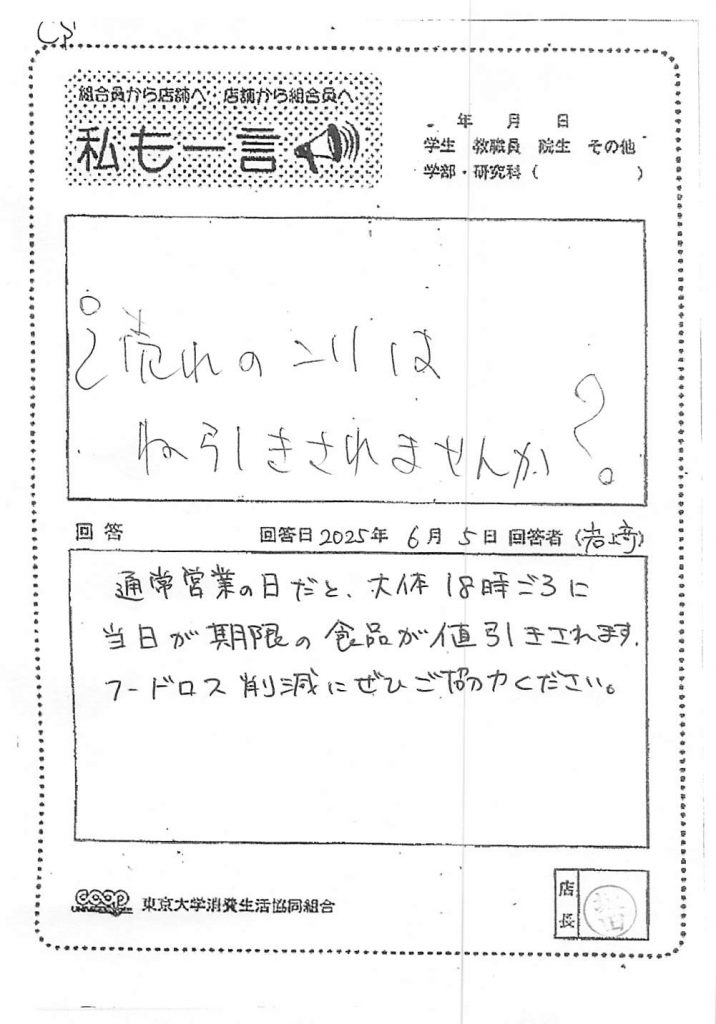 組合員から店舗へ 店舗から組合員へ
私も一言
年 月 日
学生 教職員 院生 その他
学部・研究科( )
¿売れのこりは
ね引きされませんか?
回答 回答日2025年 6月 5日 回答者(岩崎)
通常営業の日だと、大体18時ごろに
当日が期限の食品が値引きされます.
フードロス削減にぜひご協力ください。
coop 東京大学消費生活協同組合
店長